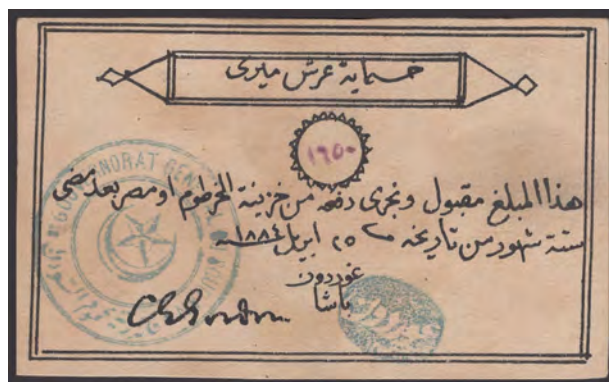 خمسماية غرش ميرى
١٩٥٠
هذا المبلغ مقبول ونجرى دفعه من خزينة الخرطوم او مصر بعد مضى
ستة شهور من تاريخه ٢٥ ابريل ١٨٨٤
غوردون
باشا
GOUVERNORAT GENERAL